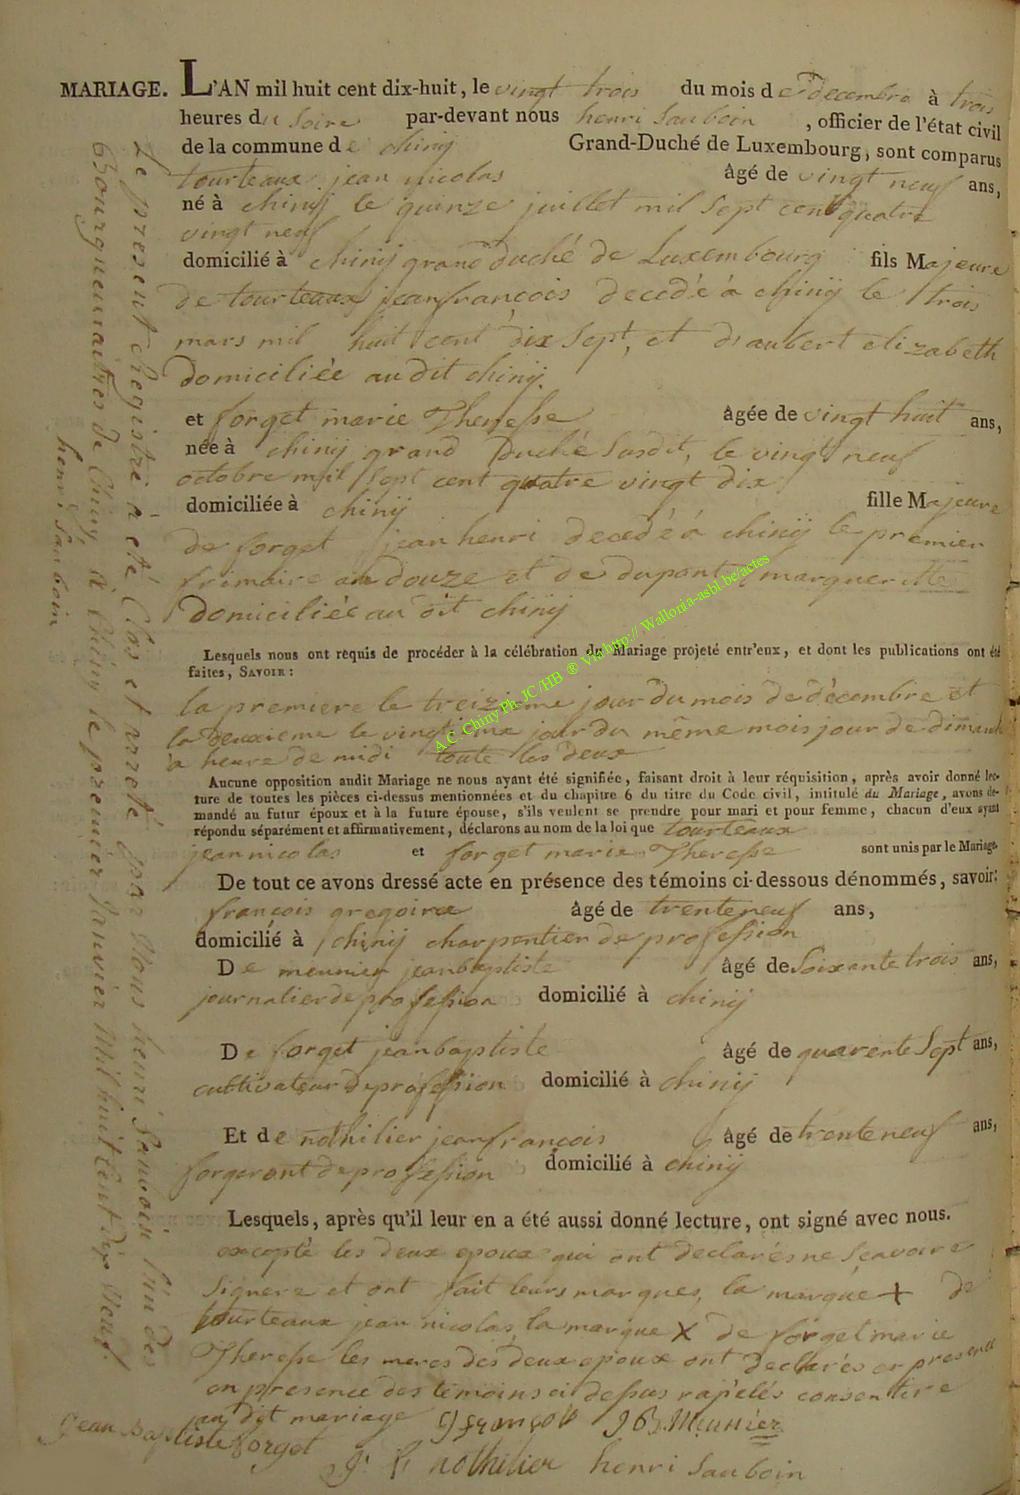 MARIAGE. L'AN mil huit cent dix-huit, le vingt trois du mois de decembre à trois
heures du soire par-devant nous henri Sauboin , officier de l'état civil
de la commune de chinÿ Grand-Duché de Luxembourg, sont comparus
tourteaux jean nicolas âgé de vingt neuf ans,
né à chinÿ le quinze juillet mil sept cent quatre
vingt neuf
domicilié à chinÿ grand duché de Luxembourg fils Majeure
de tourteaux jean françois decedé à chinÿ le trois
mars mil huit cent dix sept, et d'aubert elizabeth
domiciliée audit chinÿ.
et forget marie Therese âgée de vingt huit ans,
née à chinÿ grand Duché Susdit, le vingt neuf
octobre mil sept cent quatre vingt dix
domiciliée à chinÿ fille Majeure
de forget jean henri decedé à chinÿ le premier
frimaire an douze et de dupont margueritte
domiciliée au dit chinÿ
Lesquels nous ont requis de procéder à la célébration du Mariage projeté entr'eux, et dont les publications ont été
faites, SAVOIR :
la premiere le treizieme jour du mois de décembre et
la deuxieme le vingtieme jour du même mois jour de dimanche
a heure de midi toute les deux
Aucune opposition audit Mariage ne nous ayant été signifiée, faisant droit à leur réquisition, après avoir donné lec-
ture de toutes les pièces ci-dessus mentionnées et du chapitre 6 du titre du Code civil, intitulé du Mariage, avons de-
mandé au futur époux et à la future épouse, s'ils veulent se prendre pour mari et pour femme, chacun d'eux ayant
répondu séparément et affirmativement, déclarons au nom de la loi que tourteaux
jean nicolas et forget marie Therese sont unis par le Mariage.
De tout ce avons dressé acte en présence des témoins ci-dessous dénommés, savoir:
françois gregoire âgé de trente neuf ans,
domicilié à chinÿ charpentier de profession
De meunier jean baptiste âgé de Soixante trois ans,
journalier de profession domicilié à chinÿ
De forget jean baptiste âgé de quarente Sept ans,
cultivateur de profession domicilié à chinÿ
Et de nothilier jean françois âgé de trente neuf ans,
forgeront de profession domicilié à chinÿ
Lesquels, après qu'il leur en a été aussi donné lecture, ont signé avec nous.
excepté les deux epoux qui ont declarés ne Scavoire
Signere et ont fait leurs marques, la marque + de
tourteaux jean nicolas, la marque X de forget marie
Therese les meres des deux epoux ont declarés
en presence des témoins ci dessus rapelés consentire
au dit mariage g françois JB Meunier
Jean Baptiste forget
J f nothilier henri Sauboin
Le present Registre à eté Clos et arreté par Nous henri Sauboin l'un des
Bourguemaitres de Chiny, à Chiny le premier Janvier Mil huit Cent dix Neuf.
henri Sauboin
A.C. Chiny Ph. JC/HB ® Via http://Wallonia-asbl.be/actes